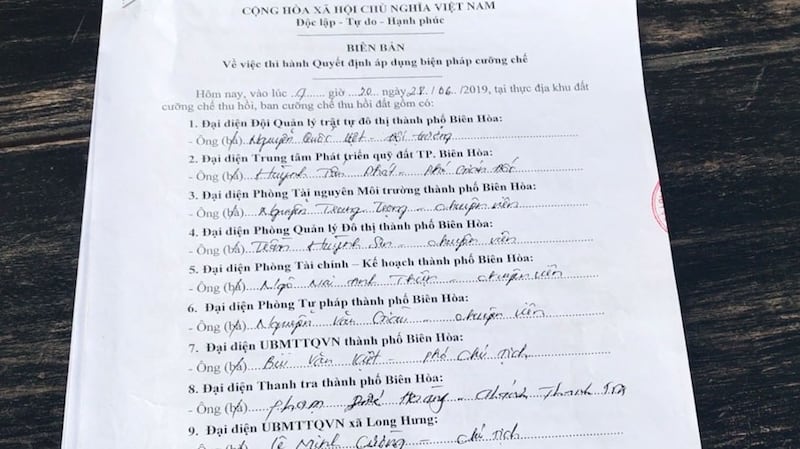 CỘNG HÒA XÃ HỘI CHỦ NGHĨA VIỆT NAM
Độc lập - Tự do - Hạnh phúc
BIÊN BẢN
Về việc thi hành Quyết định áp dụng biện pháp cưỡng chế
Hôm nay, vào lúc 9 giờ 20 ngày 28/06/2019, tại thực địa khu đất
cưỡng chế thu hồi, ban cưỡng chế thu hồi đất gồm có:
1. Đại diện Đội Quản lý trật tự đô thị thành phố Biên Hòa:
- Ông (bà) Nguyễn Quốc Việt - Đội trưởng
2. Đại diện Trung tâm Phát triển quỹ đất TP. Biên Hòa:
- Ông (bà) Huỳnh Tấn Phát - Phó Giám đốc
3. Đại diện Phòng Tài nguyên Môi trường thành phố Biên Hòa:
- Ông (bà) Nguyễn Trung - chuyên viên
4. Đại diện Phòng Quản lý Đô thị thành phố Biên Hòa:
- Ông (bà) Trần Huỳnh Sơn - chuyên viên
5. Đại diện Phòng Tài chính – Kế hoạch thành phố Biên Hòa:
- Ông (bà) Ngô Minh - chuyên viên
6. Đại diện Phòng Tư pháp thành phố Biên Hòa:
- Ông (bà) Nguyễn Văn - chuyên viên
7. Đại diện UBMTTQVN thành phố Biên Hòa:
- Ông (bà) Bùi Văn Việt - Phó Chủ tịch
8. Đại diện Thanh tra thành phố Biên Hòa:
- Ông (bà) Phạm Đức Hoàng - Chánh Thanh tra
9. Đại diện UBMTTQVN xã Long Hưng:
- Ông (bà) Lê Minh Cường - Chủ tịch